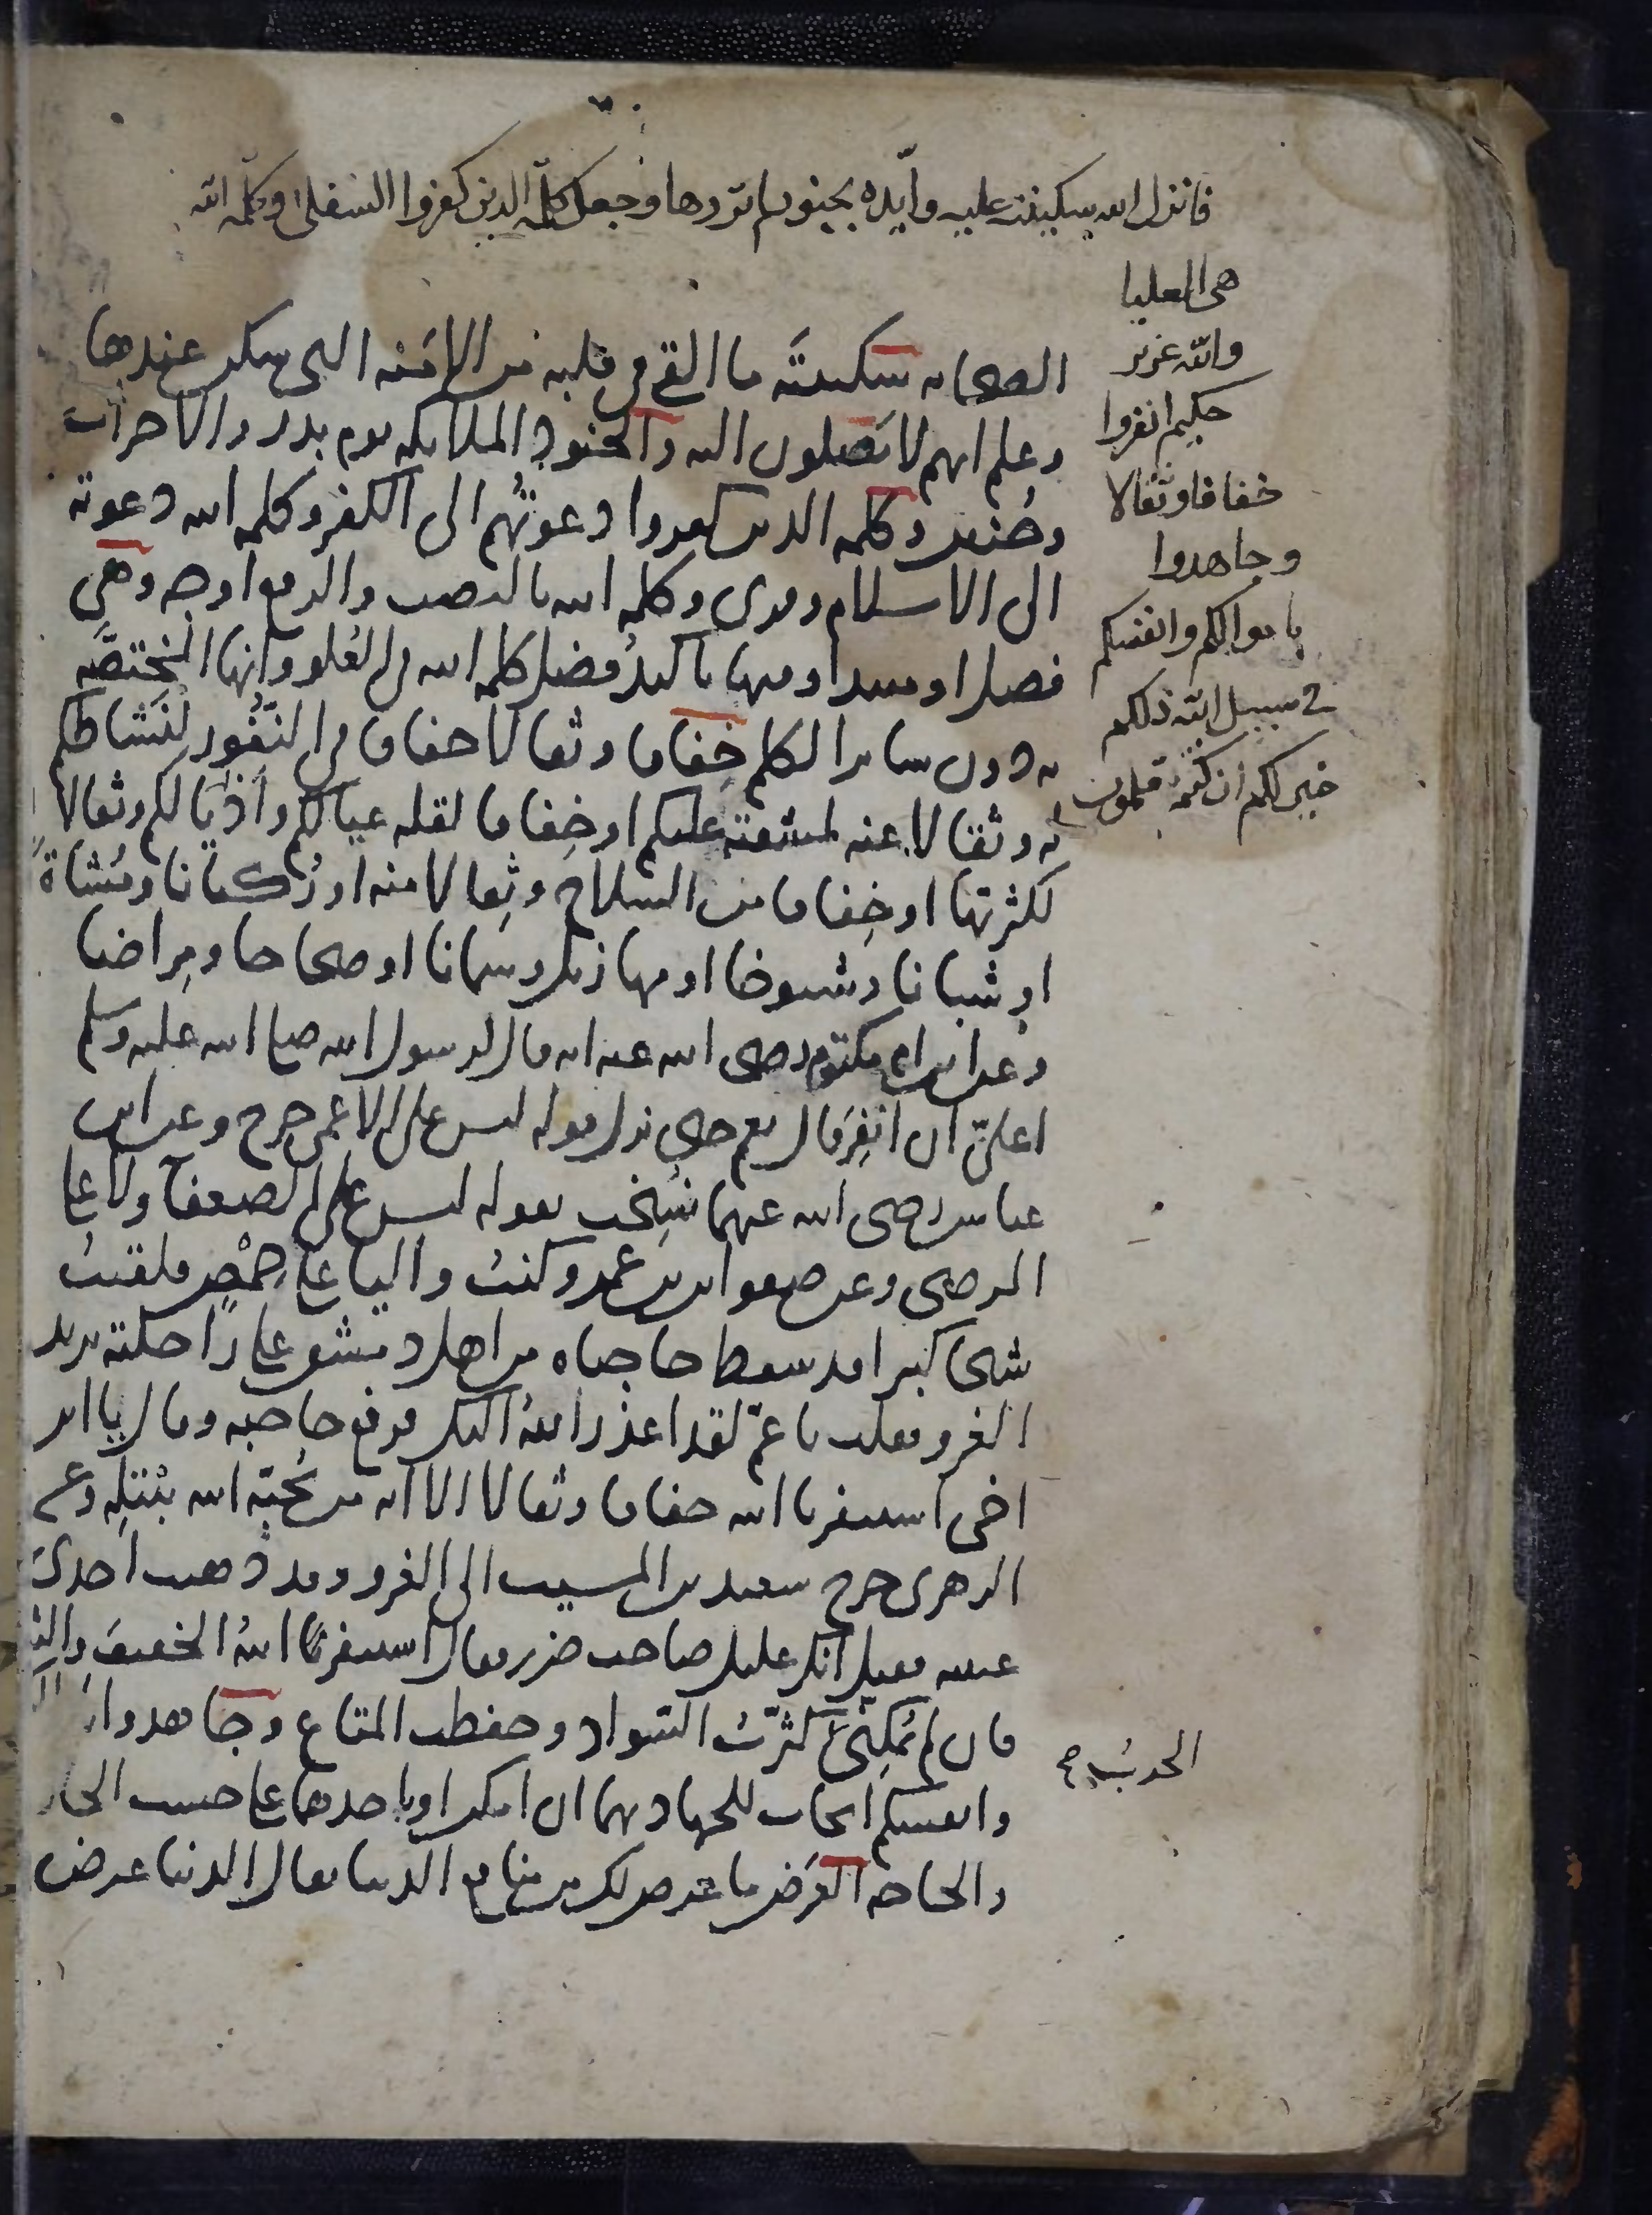 فانزل الله سكينته عليه وأيده بجنود لم تروها وجعل كلمة الذين كفروا السفلى وكلمة الله
هي العليا
والله عزيز
حكيم انفروا
خفافا وثقالا
وجاهدوا
باموالكم وانفسكم
في سبيل الله ذلكم
خير لكم ان كنتم تعلمون
الصحابه سكينته ما القى في قلبه من الامنه التي سكن عندها
وعلم انهم لا يصلون اليه والجنود الملايكه يوم بدر والاحزاب
وحنين وكلمه الذين كفروا دعوتهم الى الكفر وكلمه الله دعوته
الى الاسلام وقرى وكلمه الله بالنصب والرفع اوجه وهي
فصل او مبتدا وفيها تاكيد فضل كلمه الله في العلو وانها المختصه
به دون ساير الكلم خفافا وثقالا خفافا في النفور لنشاطكم
له وثقالا عنه لمشقته عليكم او خفافا لقله عيالكم واذيالكم وثقالا
لكثرتها او خفافا من السلاح وثقالا منه او ركبانا ومشاة
او شبانا وشيوخا او مهازيل وسمانا او صحاحا ومراضا
وعن ابن ام مكتوم رضى الله عنه انه قال لرسول الله صلى الله عليه وسلم
اعلى ان انفر قال نعم حتى نزل قوله ليس على الاعمى حرج وعن ابن
عباس رضى الله عنهما نسخت بقوله ليس على الضعفآ ولا على
المرضى وعن صفوان بن عمرو كنت واليا على حمص فلقيت
شيخا كبيرا قد سقط حاجباه من اهل دمشق على راحلته يريد
الغزو فقلت يا عم لقد اعذر الله اليك فرفع حاجبه وقال يا ابن
اخي استنفرنا الله خفافا وثقالا الا انه من يحبه الله يبتله وعن
الزهرى خرج سعيد بن المسيب الى الغزو وقد ذهبت احدى
عينيه فقيل انك عليل صاحب ضرر فقال استنفرنا الله الخفيف والثقيل
فان لم يمكنى كثرت السواد وحفظت المتاع وجاهدوا
وانفسكم ايجاب للجهاد بهما ان امكن او باحدهما على حسب الحال
والحاجه العرض ما عرض لك من منافع الدنيا يقال الدنيا عرض
الحرب صح